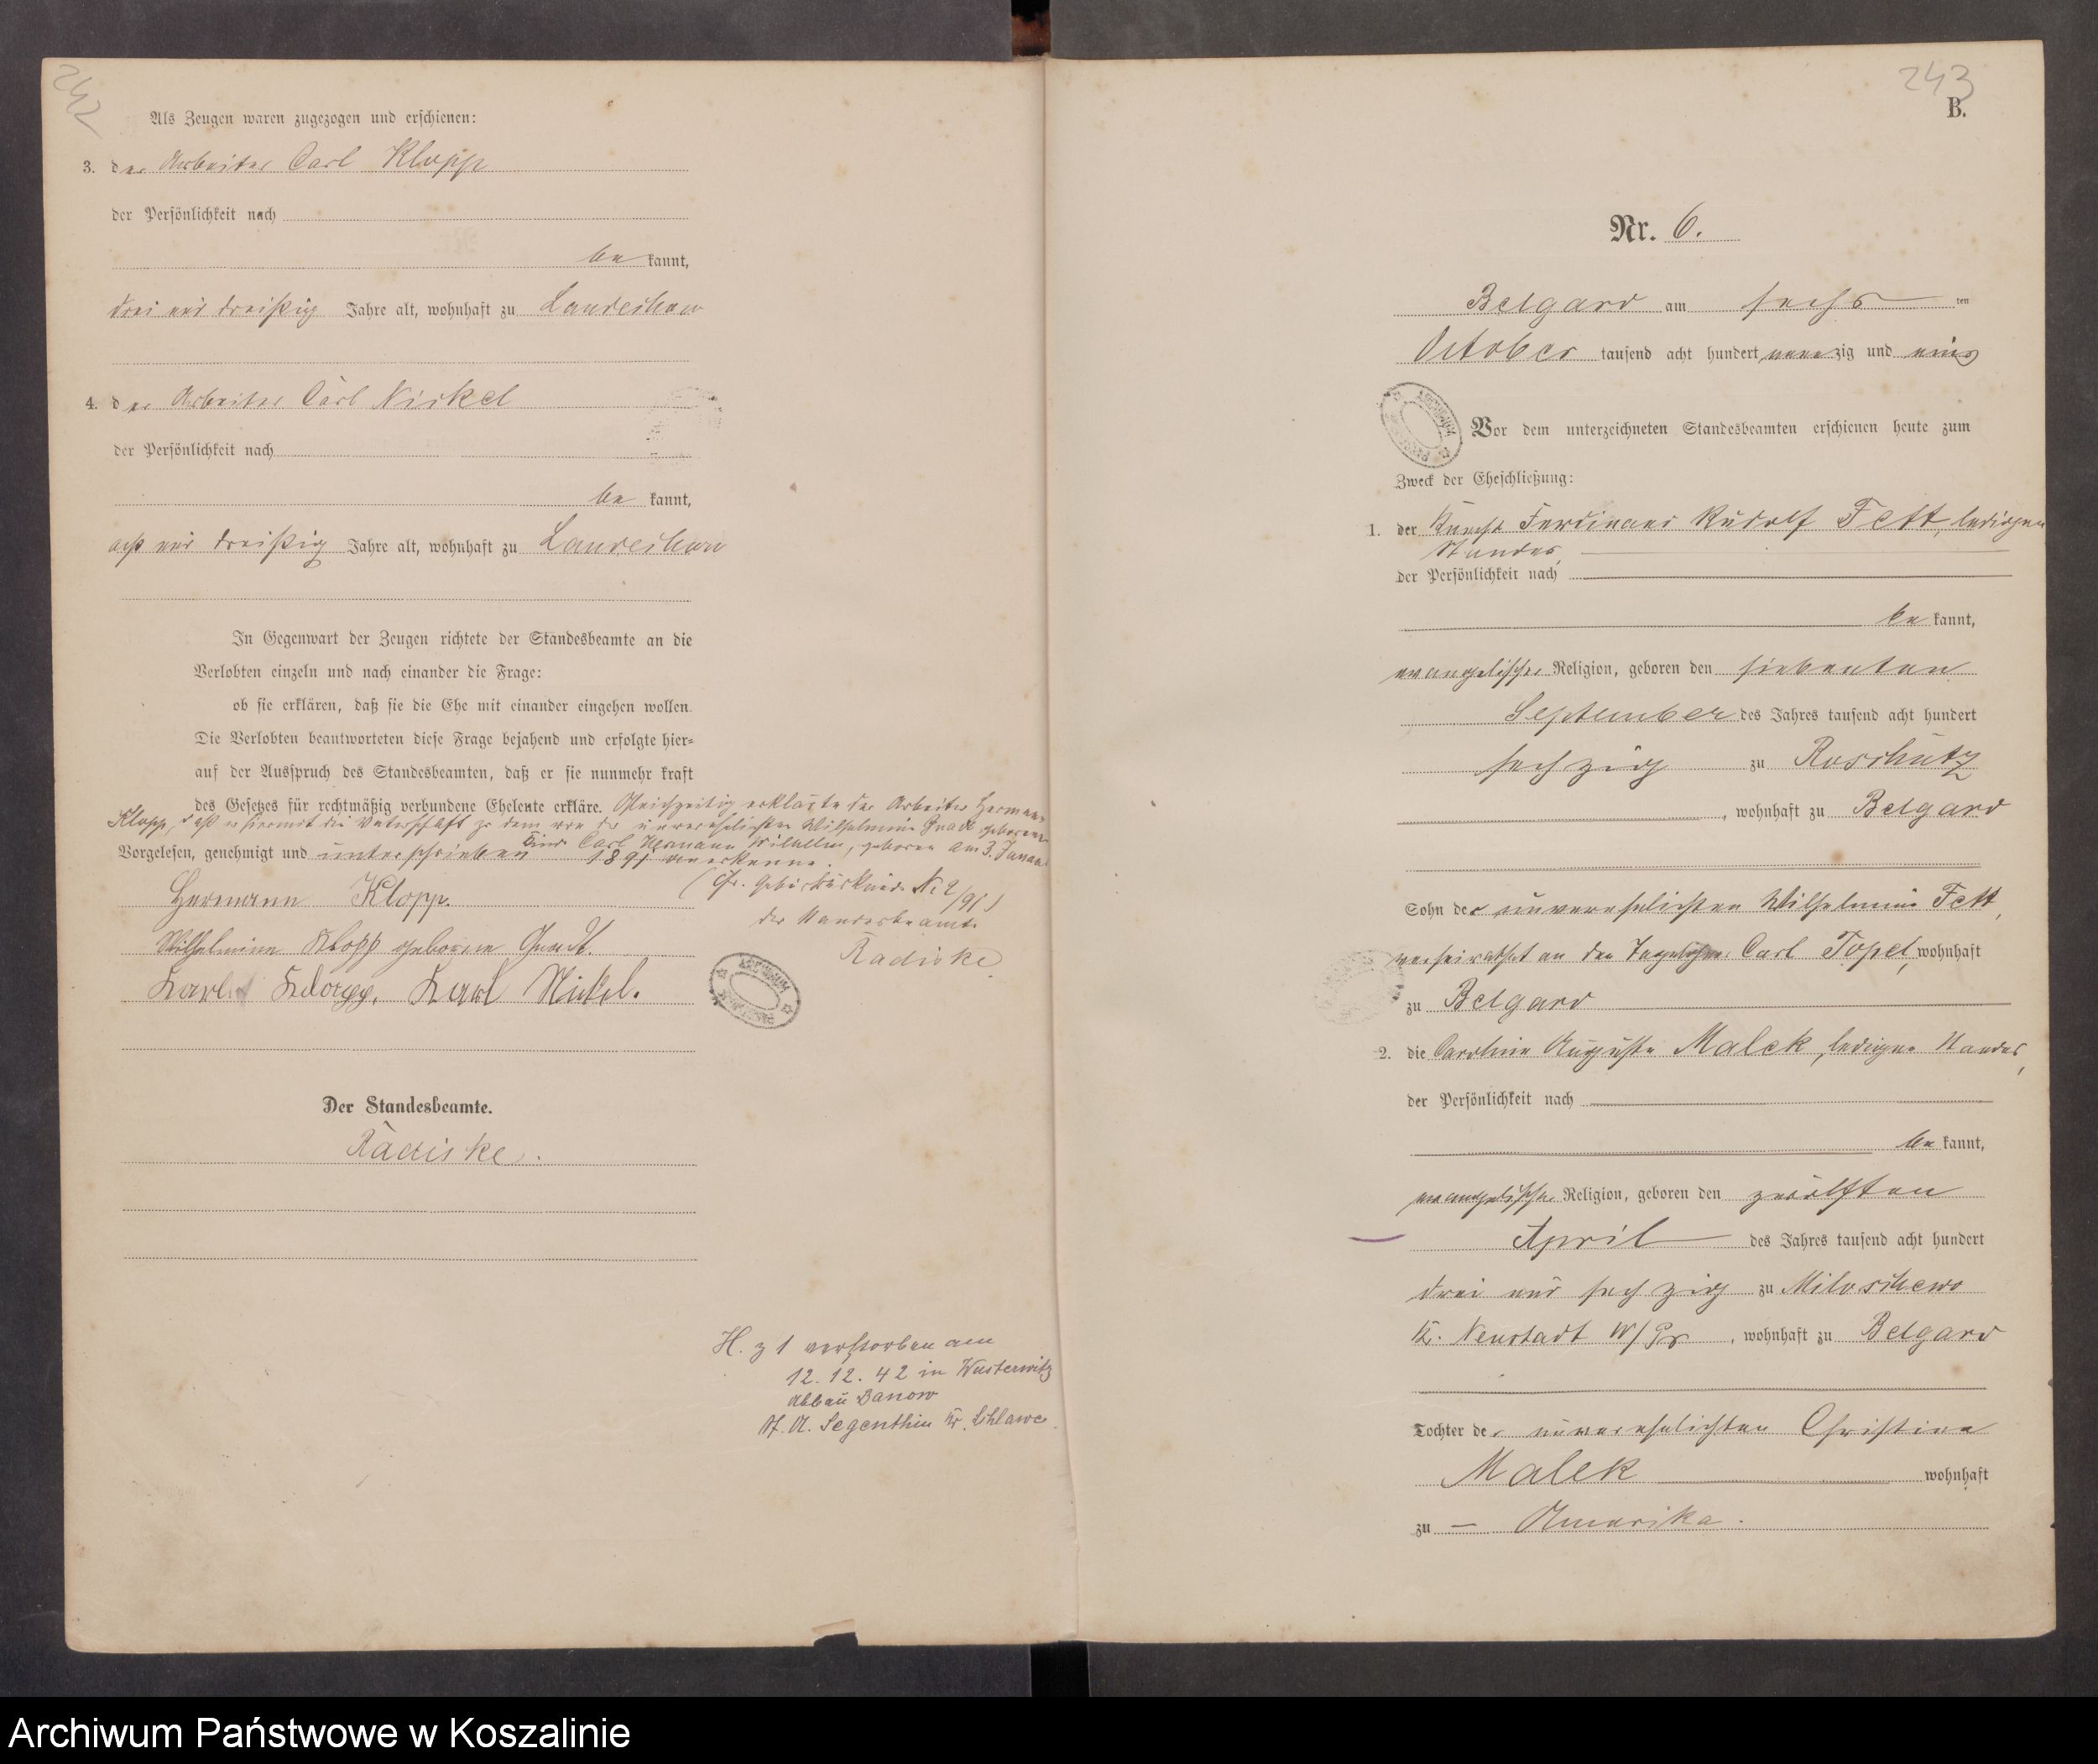 242
Als Zeugen waren zugezogen und erschienen:
3. der Arbeiter Carl Klopp
der Persönlichkeit nach
be kannt,
drei und dreißig Jahre alt, wohnhaft zu Landechow
4. der Arbeiter Carl Nickel
der Persönlichkeit nach
be kannt,
acht und dreißig Jahre alt, wohnhaft zu Landechow
In Gegenwart der Zeugen richtete der Standesbeamte an die
Verlobten einzeln und nach einander die Frage:
ob sie erklären, daß sie die Ehe mit einander eingehen wollen.
Die Verlobten beantworteten diese Frage bejahend und erfolgte hier-
auf der Ausspruch des Standesbeamten, daß er sie nunmehr kraft
des Gesetzes für rechtmäßig verbundene Eheleute erkläre. Gleichzeitig erklärte der Arbeiter Hermann
Klopp, daß er hiermit die Vaterschaft zu dem von der unverehelichten Wilhelmine Gnadt geborenen
Kind Carl Hermann Wilhelm, geboren am 3. Januar
Vorgelesen, genehmigt und unterschrieben 1891 anerkenne.
(Cfr. Geburtsurkunde Nr 2/91)
Hermann Klopp.
der Standesbeamte
Wilhelmine Klopp geborene Gnadt.
Radiske
Karl Klopp. Karl Nickel.
ARCHIWUM
Der Standesbeamte.
Radiske.
H. z 1 verstorben am
12.12.42 in Wusterwitz
Abbau Danow
St. A. Segenthin Kr. Schlawe.
243
B.
Nr. 6.
Belgard am sechs ten
October tausend acht hundert neunzig und eins
ARCHIWUM
Vor dem unterzeichneten Standesbeamten erschienen heute zum
Zweck der Eheschließung:
1. der Knecht Ferdinand Rudolf Fett, ledigen
Standes,
der Persönlichkeit nach
be kannt,
evangelischer Religion, geboren den siebenten
September des Jahres tausend acht hundert
sechzig zu Roschütz
, wohnhaft zu Belgard
Sohn der unverehelichten Wilhelmine Fett,
verheirathet an den Tagelöhner Carl Topel, wohnhaft
zu Belgard
2. die Caroline Auguste Malek, ledigen Standes,
der Persönlichkeit nach
be kannt,
evangelischer Religion, geboren den zwölften
April des Jahres tausend acht hundert
drei und sechzig zu Miloschewo
Kr. Neustadt W/Pr , wohnhaft zu Belgard
Tochter der unverehelichten Christine
Malek wohnhaft
zu – Amerika.
Archiwum Państwowe w Koszalinie